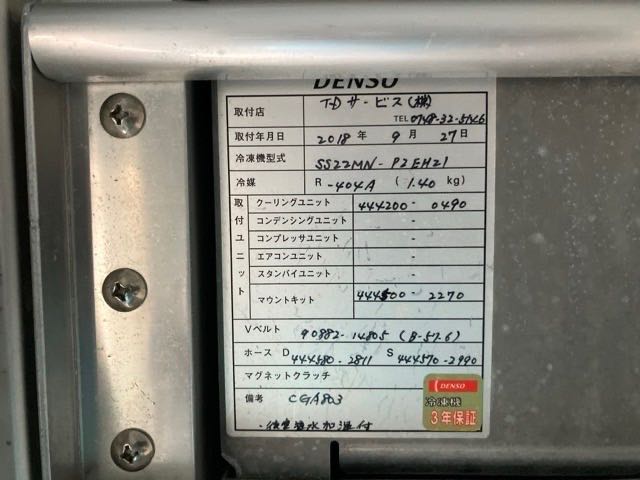 DENSO
取付店 T-Dサービス(株)
TEL 0748-32-5546
取付年月日 2018 年 9 月 27 日
冷凍機型式 SS22MN-P2EH21
冷媒 R -404A ( 1.40 kg)
取付ユニット
クーリングユニット 444200-0490
コンデンシングユニット -
コンプレッサユニット -
エアコンユニット -
スタンバイユニット -
マウントキット 444500-2270
Vベルト 90882-14805 (B-57.6)
ホース D 444580-2811 S 444570-2990
マグネットクラッチ
備考 CGA803
DENSO
冷凍機
3年保証
温水加温付